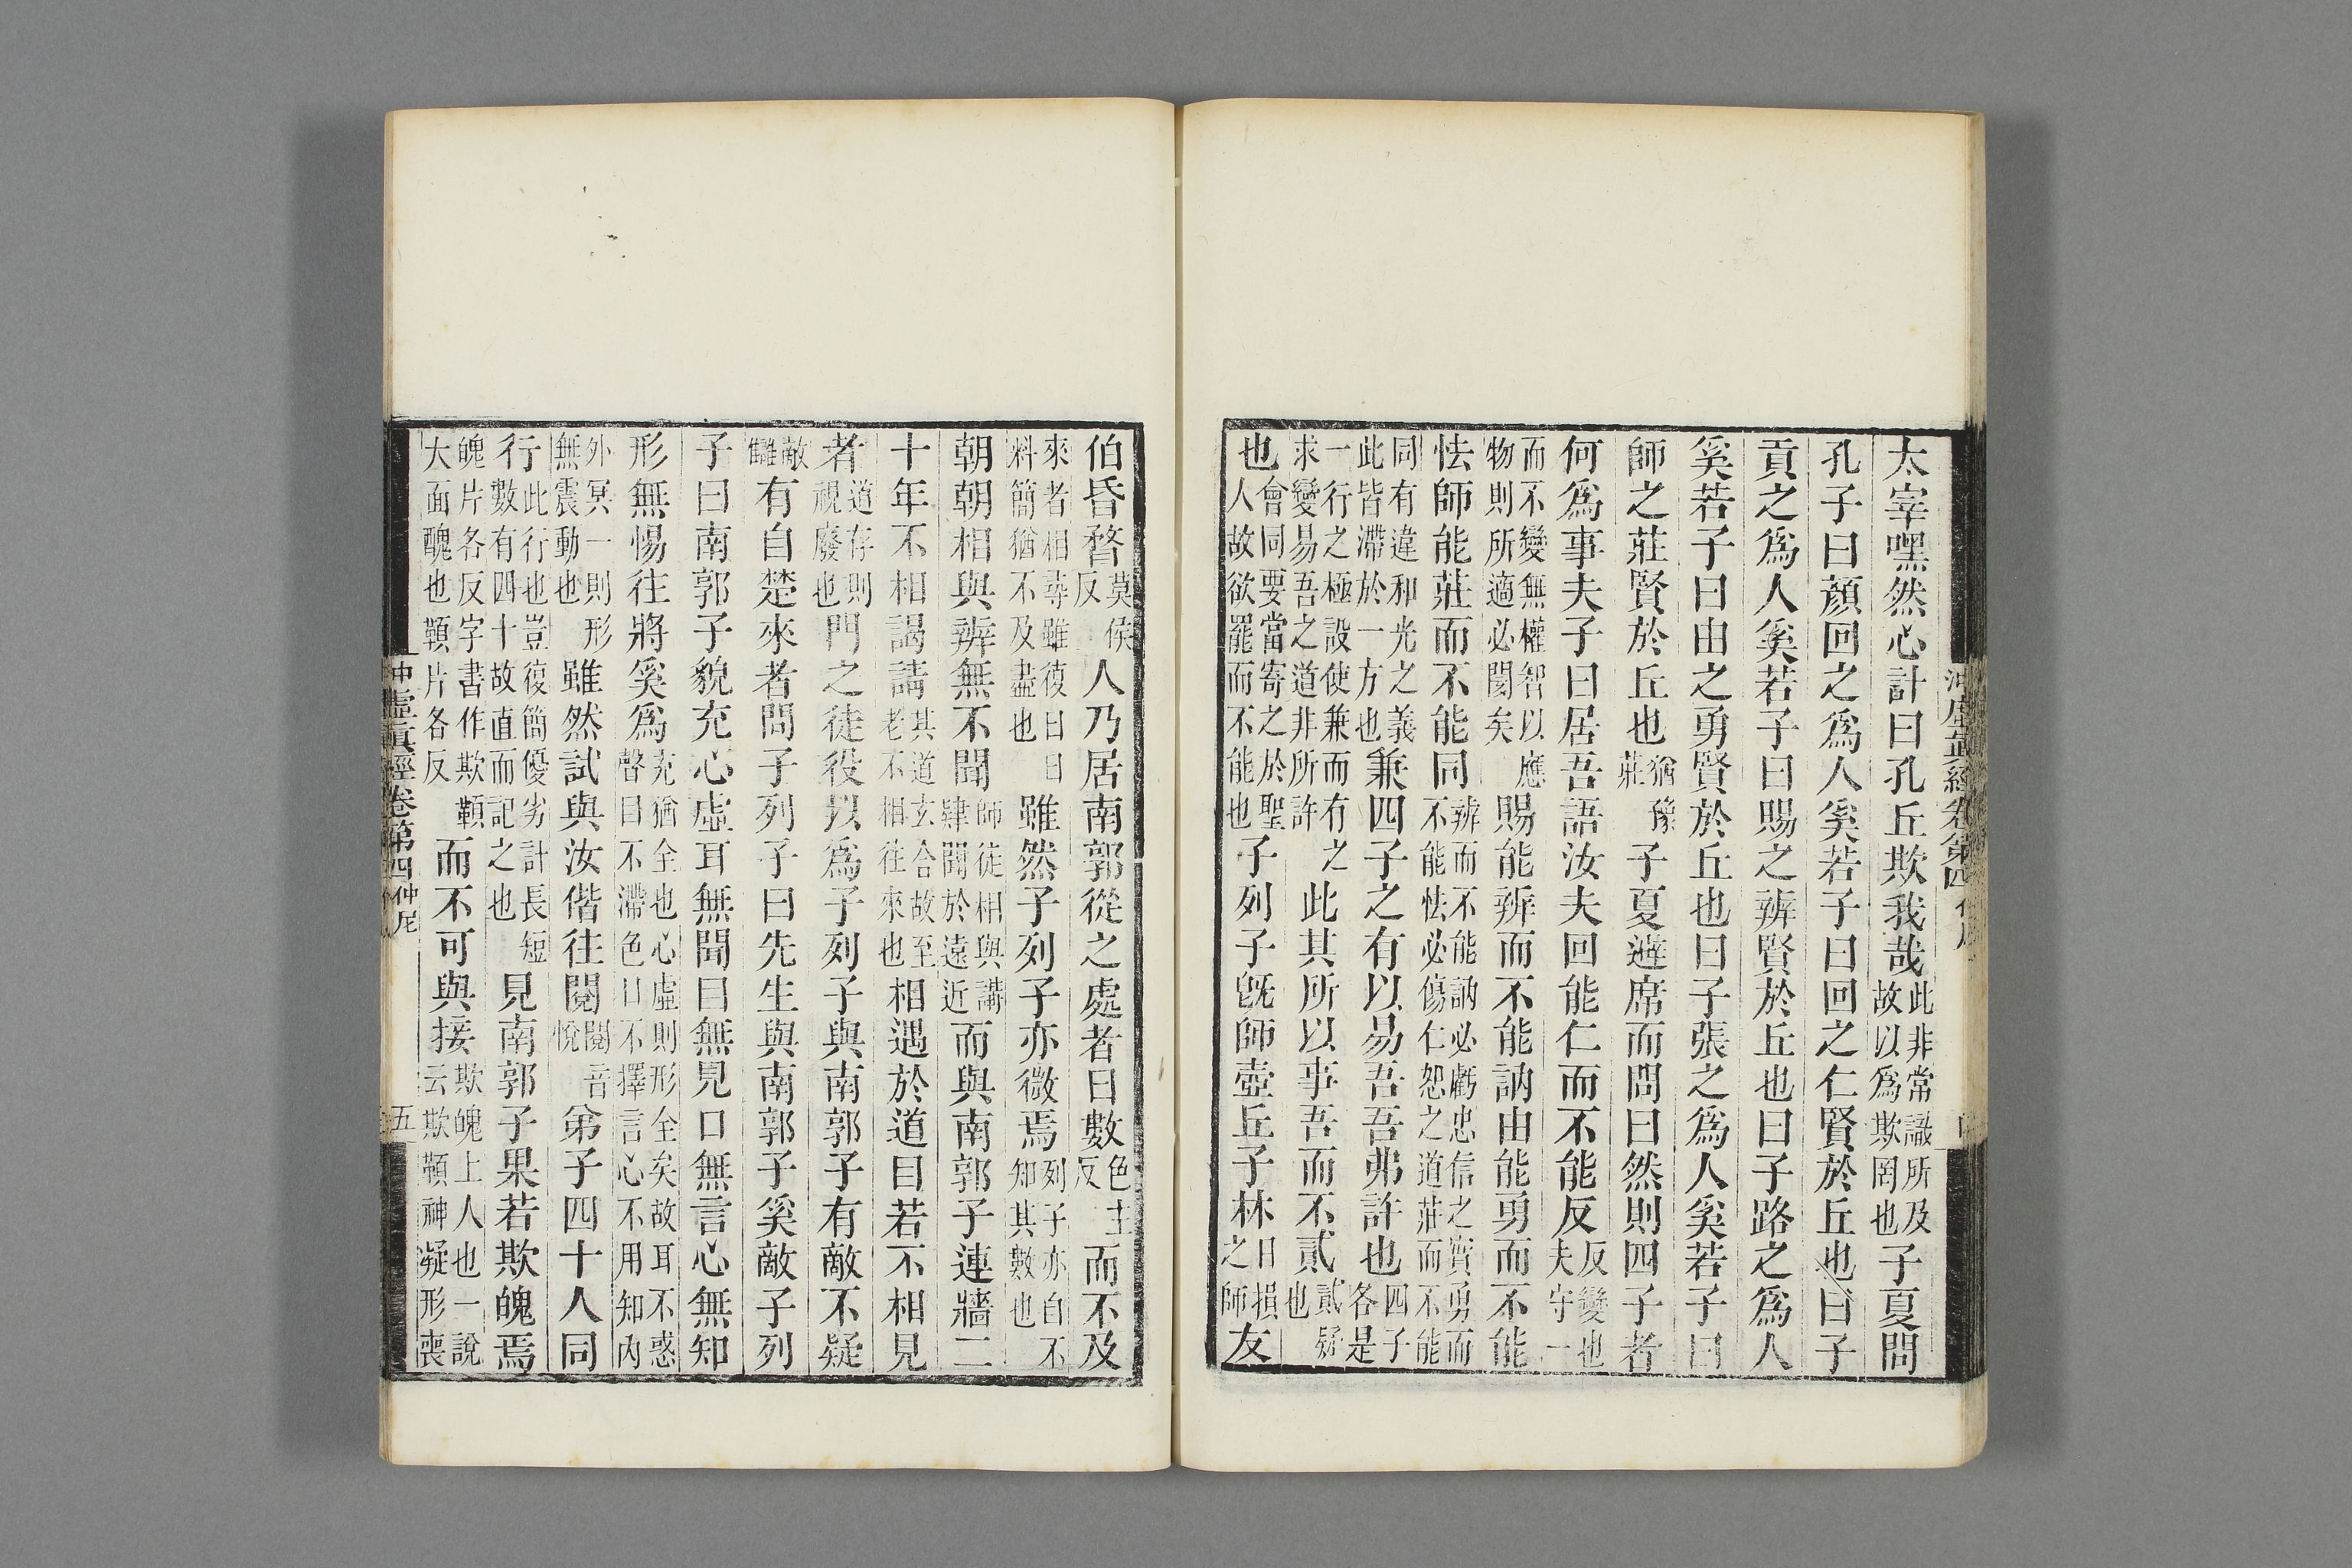 太宰嘿然心計曰孔丘欺我哉此非常識所及故以爲欺罔也子夏問
孔子曰顏回之爲人奚若子曰回之仁賢於丘也曰子
貢之爲人奚若子曰賜之辨賢於丘也曰子路之爲人
奚若子曰由之勇賢於丘也曰子張之爲人奚若子曰
師之莊賢於丘也猶豫莊子夏避席而問曰然則四子者
何爲事夫子曰居吾語汝夫回能仁而不能反反變也夫守一
而不變無權智以應物則所適必閡矣賜能辨而不能訥由能勇而不能
怯師能莊而不能同辨而不能訥必虧忠信之實勇而不能怯必傷仁恕之道莊而不能
同有違和光之義此皆滯於一方也兼四子之有以易吾吾弗許也四子各是
一行之極設使兼而有之求變易吾之道非所許此其所以事吾而不貳貳疑也
也會同要當寄之於聖人故欲罷而不能也子列子旣師壺丘子林日損之師友
冲虛眞經卷第四
伯昏瞀莫侯反人乃居南郭從之處者日數色主反而不及
來者相尋雖復日日料簡猶不及盡也雖然子列子亦微焉列子亦自不知其數也
朝朝相與辨無不聞師徒相與講肄聞於遠近而與南郭子連牆二
十年不相謁請其道玄合故至老不相往來也相遇於道目若不相見
者道存則視廢也門之徒役以爲子列子與南郭子有敵不疑
敵讎有自楚來者問子列子曰先生與南郭子奚敵子列
子曰南郭子貌充心虛耳無聞目無見口無言心無知
形無惕往將奚爲充猶全也心虛則形全矣故耳不惑聲目不滯色口不擇言心不用知內
外冥一則形無震動也雖然試與汝偕往閱閱音悅弟子四十人同
行此行也豈復簡優劣計長短行數有四十故直而記之也見南郭子果若欺魄焉
魄片各反字書作欺䫏大面醜也䫏片各反而不可與接欺魄上人也一說云欺䫏神凝形喪
冲虛眞經卷第四 仲尼 五